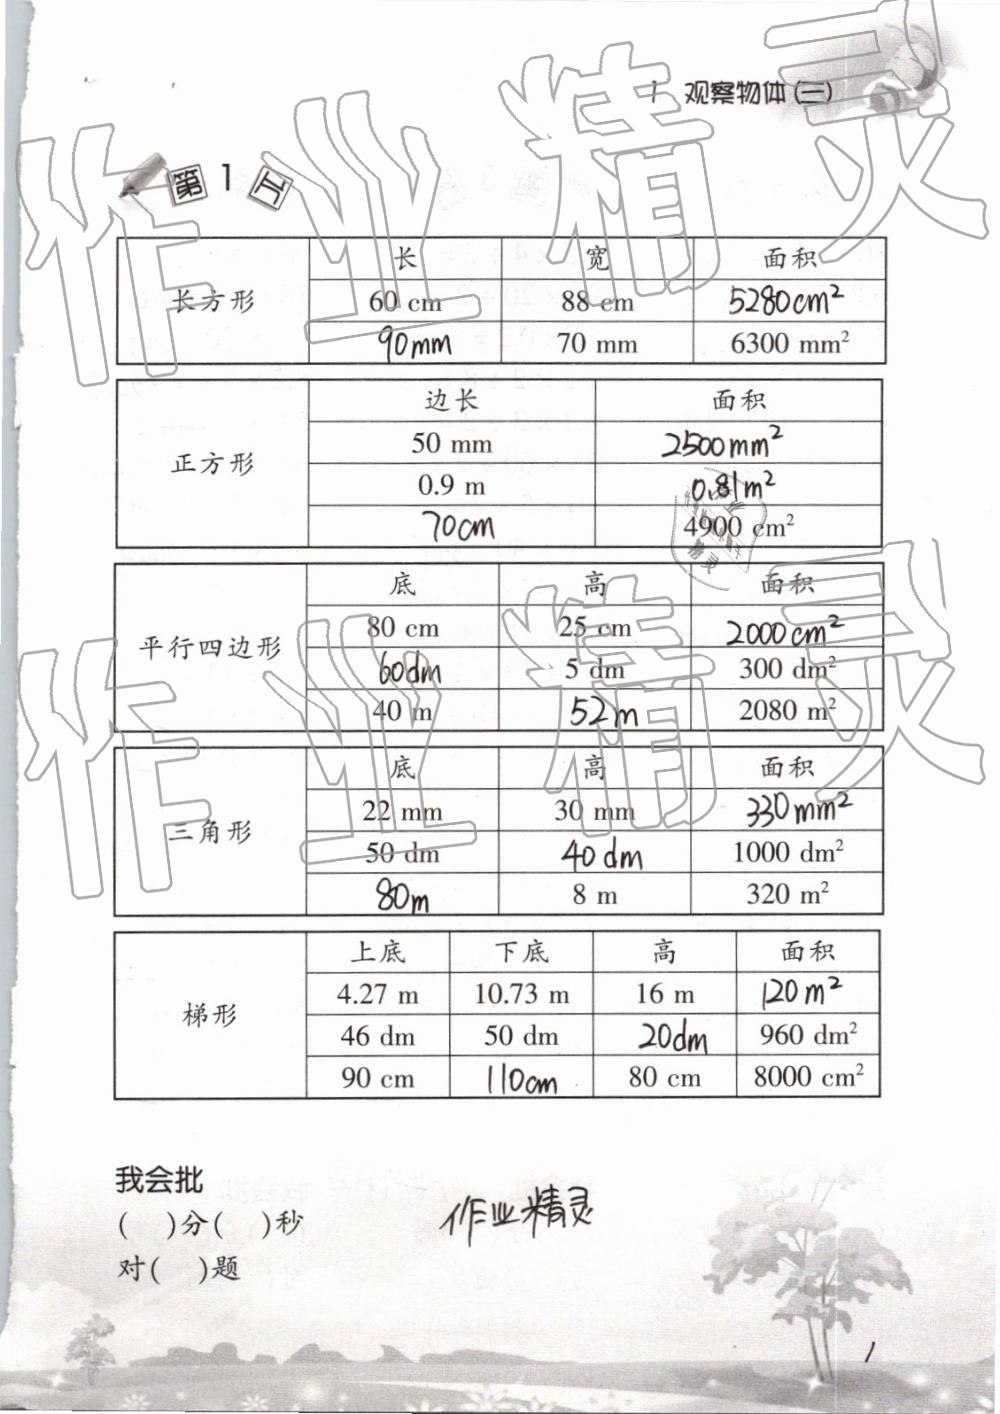 1 观察物体(三)
第1页
长方形
长 宽 面积
60 cm 88 cm 5280cm²
90mm 70 mm 6300 mm²
正方形
边长 面积
50 mm 2500mm²
0.9 m 0.81m²
70cm 4900 cm²
平行四边形
底 高 面积
80 cm 25 cm 2000cm²
60dm 5 dm 300 dm²
40 m 52m 2080 m²
三角形
底 高 面积
22 mm 30 mm 330mm²
50 dm 40dm 1000 dm²
80m 8 m 320 m²
梯形
上底 下底 高 面积
4.27 m 10.73 m 16 m 120m²
46 dm 50 dm 20dm 960 dm²
90 cm 110cm 80 cm 8000 cm²
我会批
( )分( )秒
对( )题
作业精灵
1
作业精灵
作业精灵